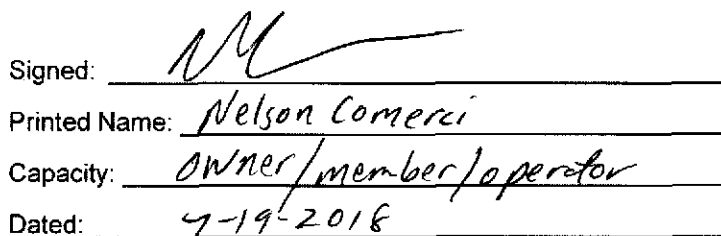 Signed:
Printed Name: Nelson Comerci
Capacity: owner/member/operator
Dated: 7-19-2018